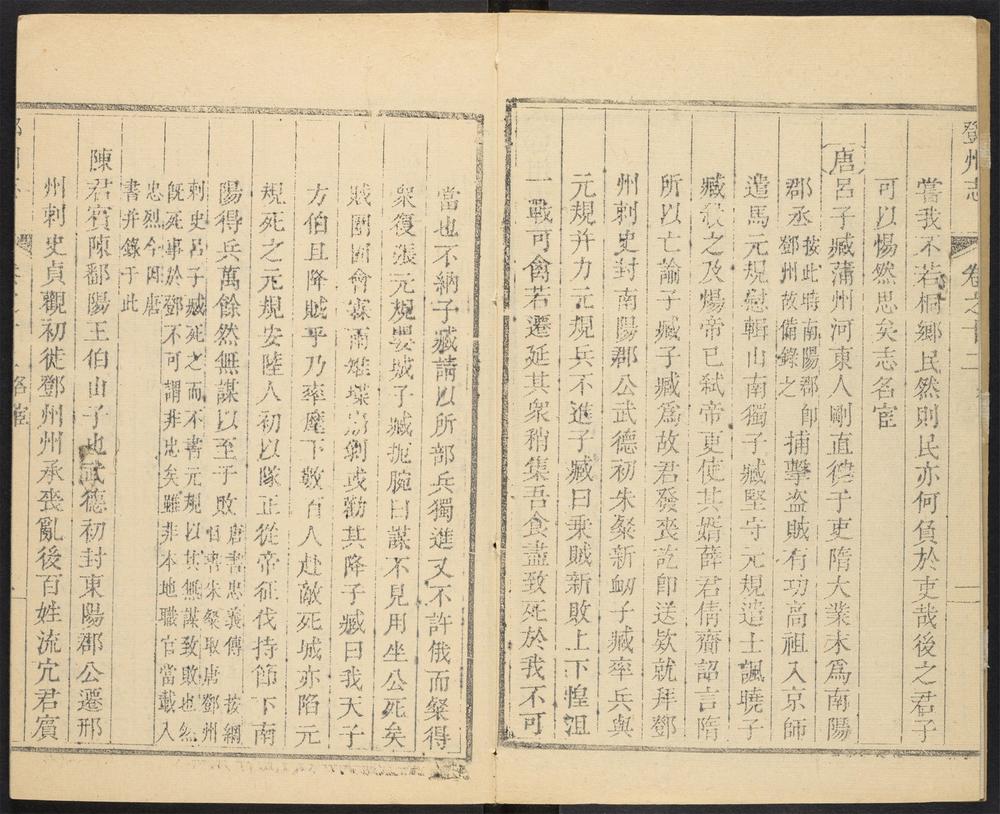 鄧州志 卷之十一
嘗我不若桐鄉民然則民亦何負於吏哉後之君子
可以惕然思矣志名宦
唐呂子臧蒲州河東人剛直徤于吏隋大業末爲南陽
郡丞按此時南陽郡卽鄧州故備錄之捕擊盗賊有功高祖入京師
遣馬元規慰輯山南獨子臧堅守元規遣士諷曉子
臧殺之及煬帝已弑帝更使其婿薛君倩齎詔言隋
所以亡諭子臧子臧爲故君發丧訖卽送欵就拜鄧
州刺史封南陽郡公武德初朱粲新衂子臧率兵與
元規并力元規兵不進子臧曰乗賊新敗上下惶沮
一戰可禽若遷延其衆稍集吾食盡致死於我不可
當也不納子臧請以所部兵獨進又不許俄而粲得
衆復張元規嬰城子臧扼腕曰謀不見用坐公死矣
賊圍固會霖雨雉堞崩剝或勸其降子臧曰我天子
方伯且降賊乎乃率麾下數百人赴敵死城亦陷元
規死之元規安陸人初以隊正從帝征伐持節下南
陽得兵萬餘然無謀以至于敗唐書忠義傳 按綱目書朱粲取唐鄧州
刺史呂子臧死之而不書元規以其無謀致敗也然
旣死事於鄧不可謂非忠矣雖非本地職官當載入
忠烈今因唐
書并錄于此
陳君賓陳鄱陽王伯山子也武德初封東陽郡公遷邢
州刺史貞觀初徙鄧州州承丧亂後百姓流宂君賓
名宦